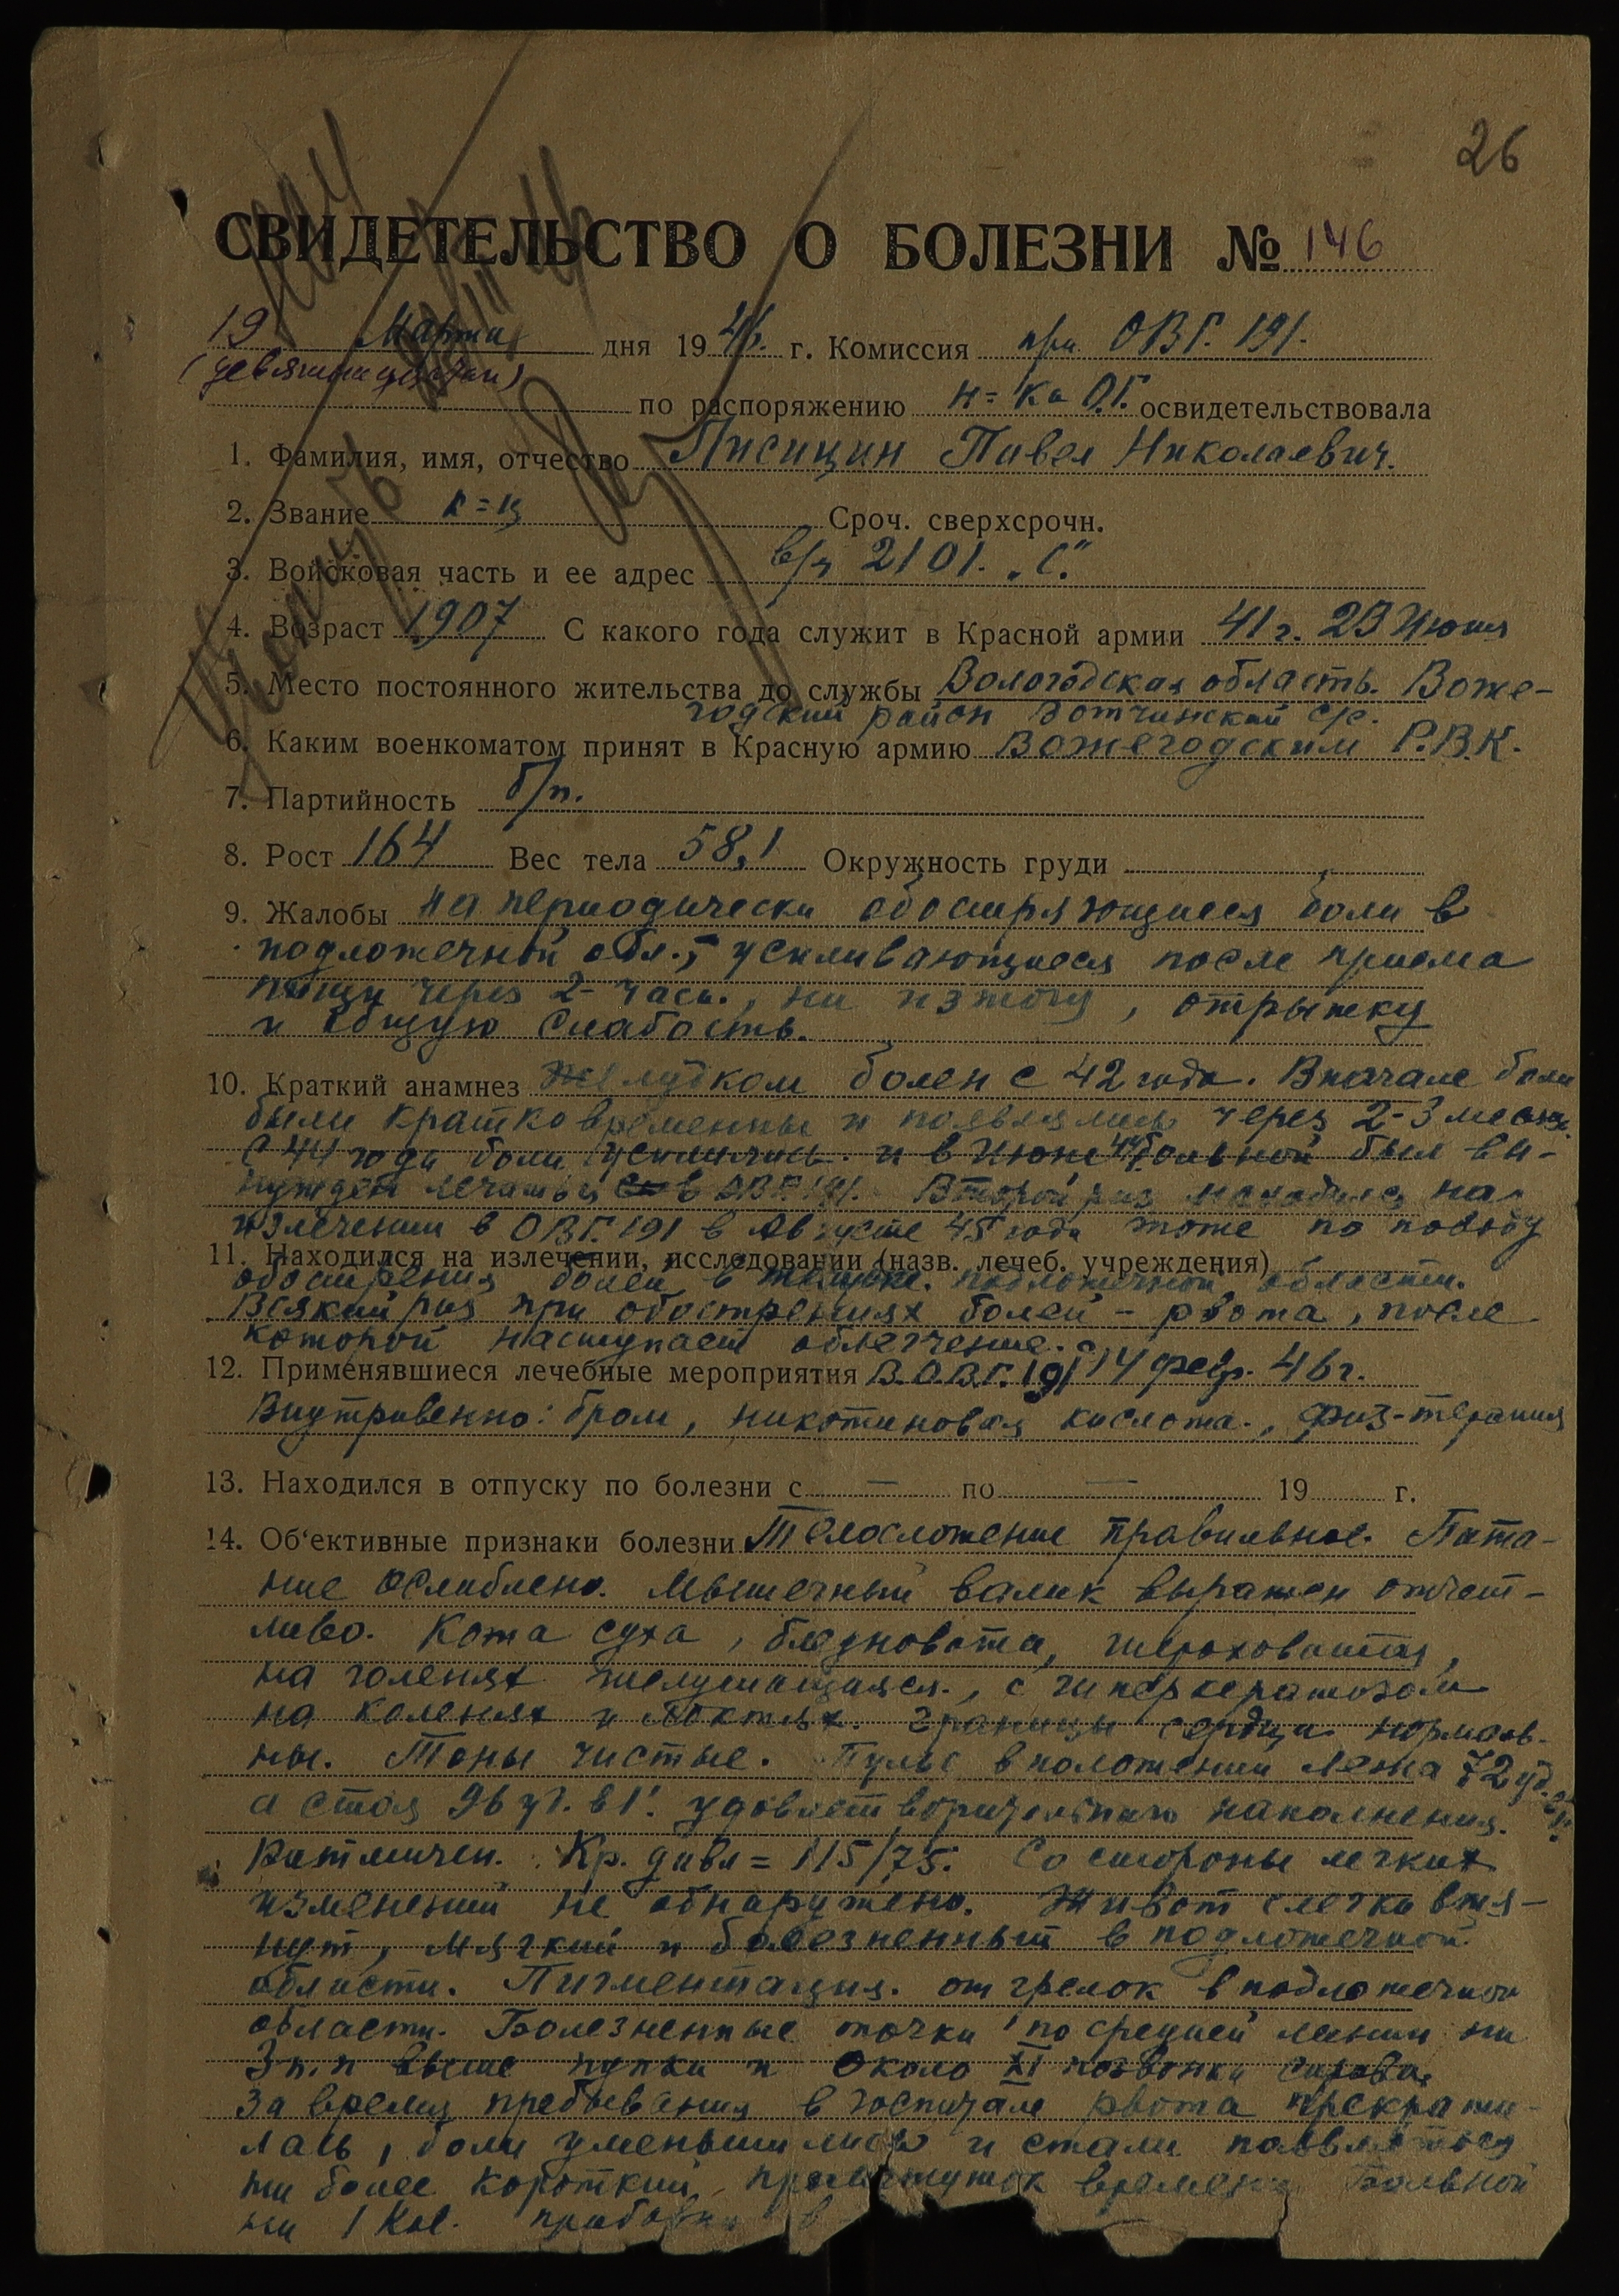 26
СВИДЕТЕЛЬСТВО О БОЛЕЗНИ № 146
19 Марта дня 1946. г. Комиссия при ОВГ. 191.
(девятнадцатого)
по распоряжению н-ка О.Г. освидетельствовала
1. Фамилия, имя, отчество Лисицин Павел Николаевич.
2. Звание к-ц Сроч. сверхсрочн.
3. Войсковая часть и ее адрес в/ч 2101. „С."
4. Возраст 1907 С какого года служит в Красной армии 41 г. 23 Июня
5. Место постоянного жительства до службы Вологодская область. Воже-
годский район Вотчинский с/с.
6. Каким военкоматом принят в Красную армию Вожегодским Р.В.К.
7. Партийность б/п.
8. Рост 164 Вес тела 58,1 Окружность груди
9. Жалобы на периодически обостряющиеся боли в
подложечной обл., усиливающиеся после приема
пищи через 2- часа., на изжогу, отрыжку
и общую слабость.
10. Краткий анамнез Желудком болен с 42 года. Вначале боли
были кратковременны и появлялись через 2-3 месяца.
С 44 года боли усилились. и в Июне 44 больной был вы-
нужден лечиться в ОВГ. 191. Второй раз находился на
излечении в ОВГ. 191 в Августе 45 года тоже по поводу
11. Находился на излечении, исследовании (назв. лечеб. учреждения)
обострения болей в подложечной области.
Всякий раз при обострениях болей - рвота, после
которой наступает облегчение.
12. Применявшиеся лечебные мероприятия В О.В.Г. 191 с 14 февр. 46 г.
Внутривенно: бром, никотиновая кислота., физ-терапия
13. Находился в отпуску по болезни с — по — 19 г.
14. Об'ективные признаки болезни Телосложение правильное. Пита-
ние ослаблено. Мышечный валик выражен отчет-
ливо. Кожа суха, бледновата, шероховатая,
на голенях шелушащаяся., с гиперкератозом
на коленях и локтях. Границы сердца нормаль-
ны. Тоны чистые. Пульс в положении лежа 72 уд. в 1'.
а стоя 96 уд. в 1'. удовлетворительного наполнения.
Ритмичен. Кр. давл = 115/75. Со стороны легких
изменений не обнаружено. Живот слегка втя-
нут, мягкий и болезненный в подложечной
области. Пигментация. от грелок в подложечной
области. Болезненные точки по средней линии на
3 п.п выше пупка и около XI позвонка справа.
За время пребывания в госпитале рвота прекрати-
лась, боли уменьшились и стали появляться
на более короткий промежуток времени Больной
на 1 кг. прибавил в